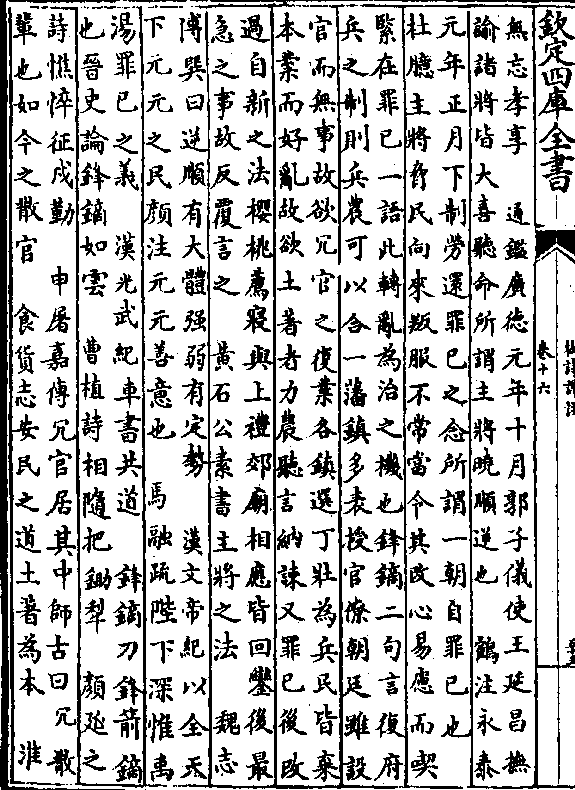 欽定四庫全書
卷十六
無忘孝享　通鑑廣德元年十月郭子儀使王延昌撫
諭諸將皆大喜聽命所謂主將曉順逆也　鶴注永泰
元年正月下制勞還罪已之念所謂一朝自罪已也
杜臆主將脅民向來叛服不常當令其改心易應而喫
緊在罪已一語此轉亂為治之機也鋒鏑二句言復府
兵之制則兵農可以合一藩鎮多表授官僚朝廷雖設
官而無事故欲冗官之復業各鎮選丁壯為兵民皆棄
本業而好亂故欲土著者力農聽言納諫又罪已後改
過自新之法櫻桃薦寢與上禮郊廟相應皆回鑾後最
急之事故反覆言之　黃石公素書主將之法　魏志
傅巽曰逆順有大體强弱有定勢　漢文帝紀以全天
下元元之民顔注元元善意也　馬融疏陛下深惟禹
湯罪已之義　漢光武紀車書共道　鋒鏑刀鋒箭鏑
也晉史論鋒鏑如雲　曹植詩相隨把鋤犂　顏延之
詩憔悴征戍勤　申屠嘉傳冗官居其中師古曰冗散
輩也如今之散官　食貨志安民之道土著為本　淮